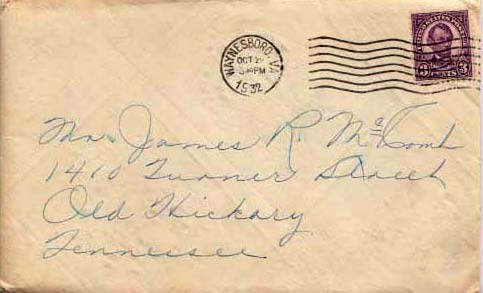 WAYNESBORO, VA.
OCT
PM
1932
UNITED STATES POSTAGE
3 CENTS 3
Mr. James R. McComb
1410 Turner Street
Old Hickory
Tennessee